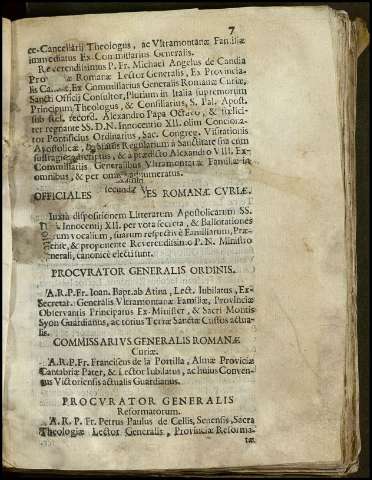 7
ce-Cancellarij Theologus, ac Vltramontanæ Familiæ
immediatus Ex-Commissarius Generalis.
Reverendissimus P. Fr. Michael Angelus de Candia
Romanæ Lector Generalis, Ex Provincia-
lis Ex Commissarius Generalis Romanæ Curiæ,
Sancti Officij Consultor, Plurium in Italia supremorum
Principum Theologus, & Consiliarius, S. Pal. Apost.
sub fæl. record. Alexandro Papa Octavo, & fœlici-
ter regnante SS. D. N. Innocentio XII. olim Conciona-
tor Pontificius Ordinarius, Sac. Congreg. Visitationis
Apostolicæ, & Status Regularium à Sanctitate sua cum
suffragio adscriptus, & a prædicto Alexandro VIII. Ex-
Commissariis Generalibus Vltramontanæ Familiæ in
omnibus, & per omnia adnumeratus.
OFFICIALES ES ROMANÆ CVRIÆ.
Iuxta dispositionem Litterarum Apostolicarum SS.
D. Innocentij XII. per vota secreta, & Ballotationes
vocalium, suarum respectivè Familiarum, Præ-
sente, & proponente Reverendissimo P. N. Ministro
Generali, canonicè electi sunt.
PROCVRATOR GENERALIS ORDINIS.
A. R. P. Fr. Ioan. Bapt. ab Atina, Lect. Iubilatus, Ex-
Secretar. Generalis Vltramontanæ Familiæ, Provinciæ
Observantis Principatus Ex-Minister, & Sacri Montis
Syon Guardianus, ac totius Terræ Sanctæ Custos actua-
lis.
COMMISSARIVS GENERALIS ROMANÆ
Curiæ.
A. R. P. Fr. Franciscus de la Portilla, Almæ Provinciæ
Cantabriæ Pater, & Lector Iubilatus, ac huius Conven-
tus Victoriensis actualis Guardianus.
PROCVRATOR GENERALIS
Reformatorum.
A. R. P. Fr. Petrus Paulus de Cellis, Senensis, Sacra
Theologiæ Lector Generalis, Provinciæ Reforma-
tæ